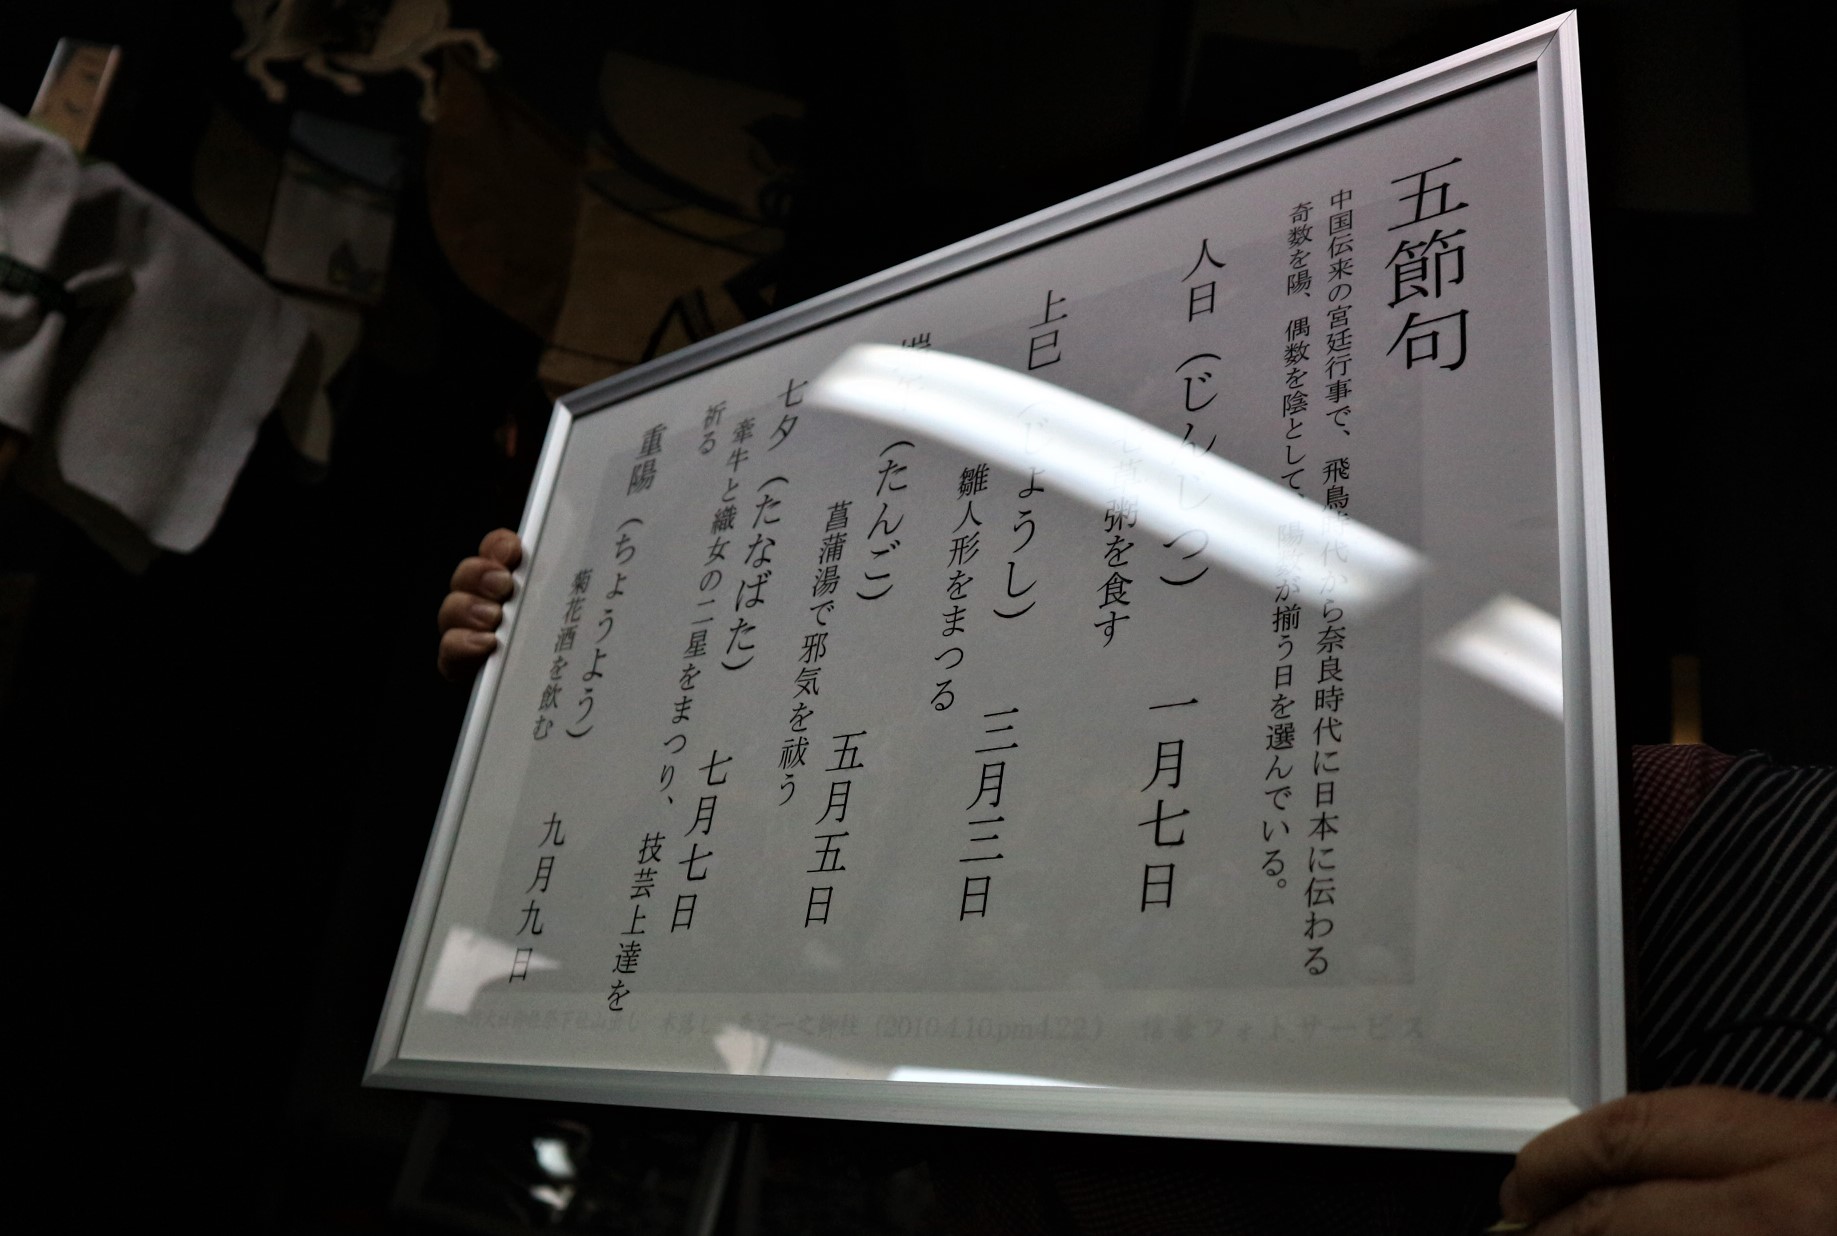 五節句
中国伝来の宮廷行事で、飛鳥時代から奈良時代に日本に伝わる
奇数を陽、偶数を陰として、陽数が揃う日を選んでいる。
人日（じんじつ） 一月七日
七草粥を食す
上巳（じょうし） 三月三日
雛人形をまつる
端午（たんご） 五月五日
菖蒲湯で邪気を祓う
七夕（たなばた） 七月七日
牽牛と織女の二星をまつり、技芸上達を
祈る
重陽（ちょうよう） 九月九日
菊花酒を飲む
(2010.4.10.pm4:22) フォトサービス